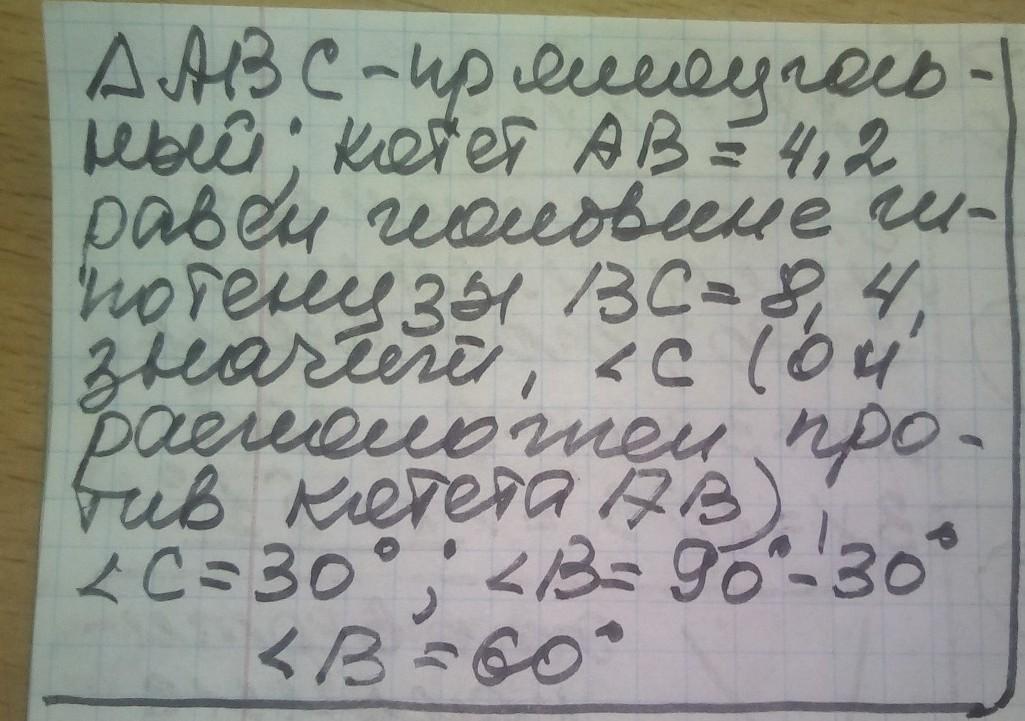 △ABC - прямоуголь-
ный; катет AB = 4,2
равен половине ги-
потенузы BC = 8,4,
значит, <C (он
расположен про-
тив катета AB),
<C = 30°; <B = 90° - 30°
<B = 60°